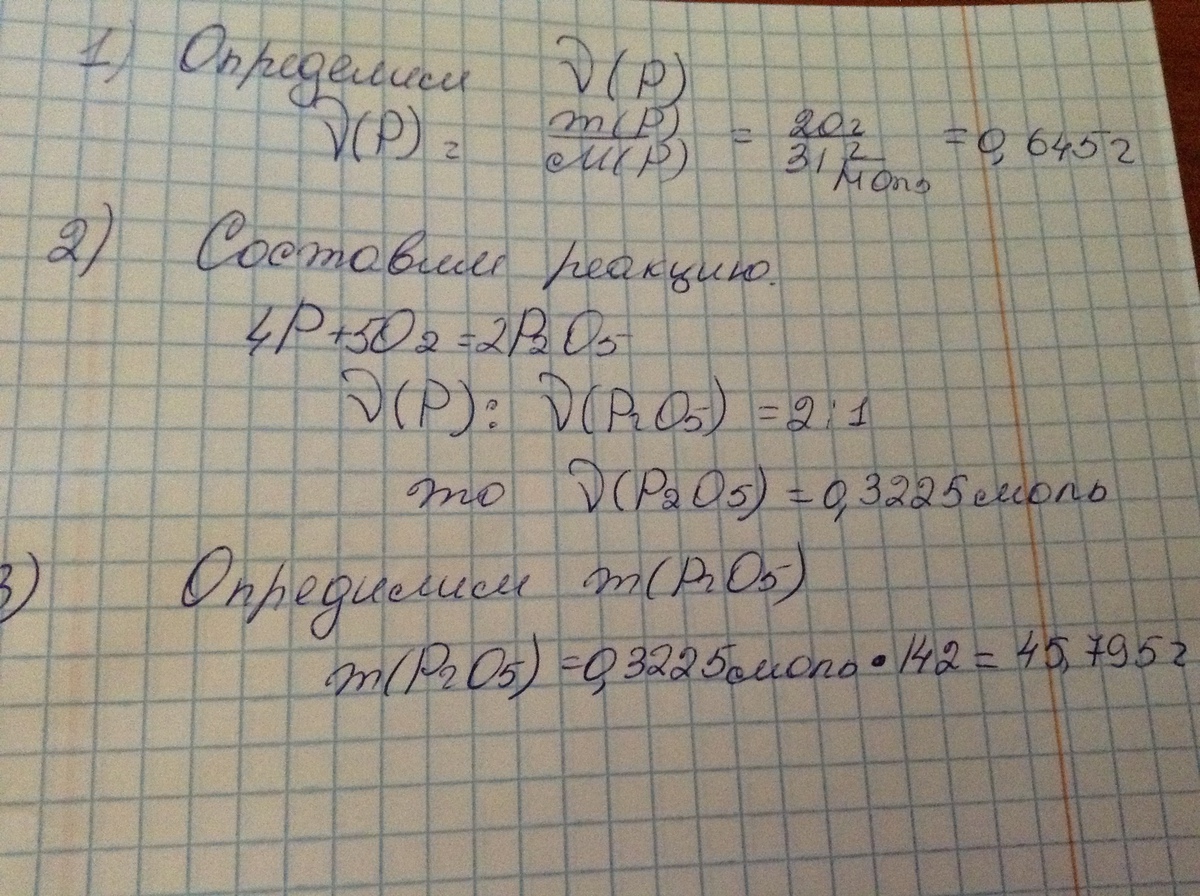 1) Определим ν(P)
ν(P) = m(P)/M(P) = 20г/31 г/моль = 0,645г
2) Составим реакцию.
4P+5O2=2P2O5
ν(P): ν(P2O5) =2:1
то ν(P2O5) =0,3225моль
3) Опредилим m(P2O5)
m(P2O5) =0,3225моль•142= 45,795г